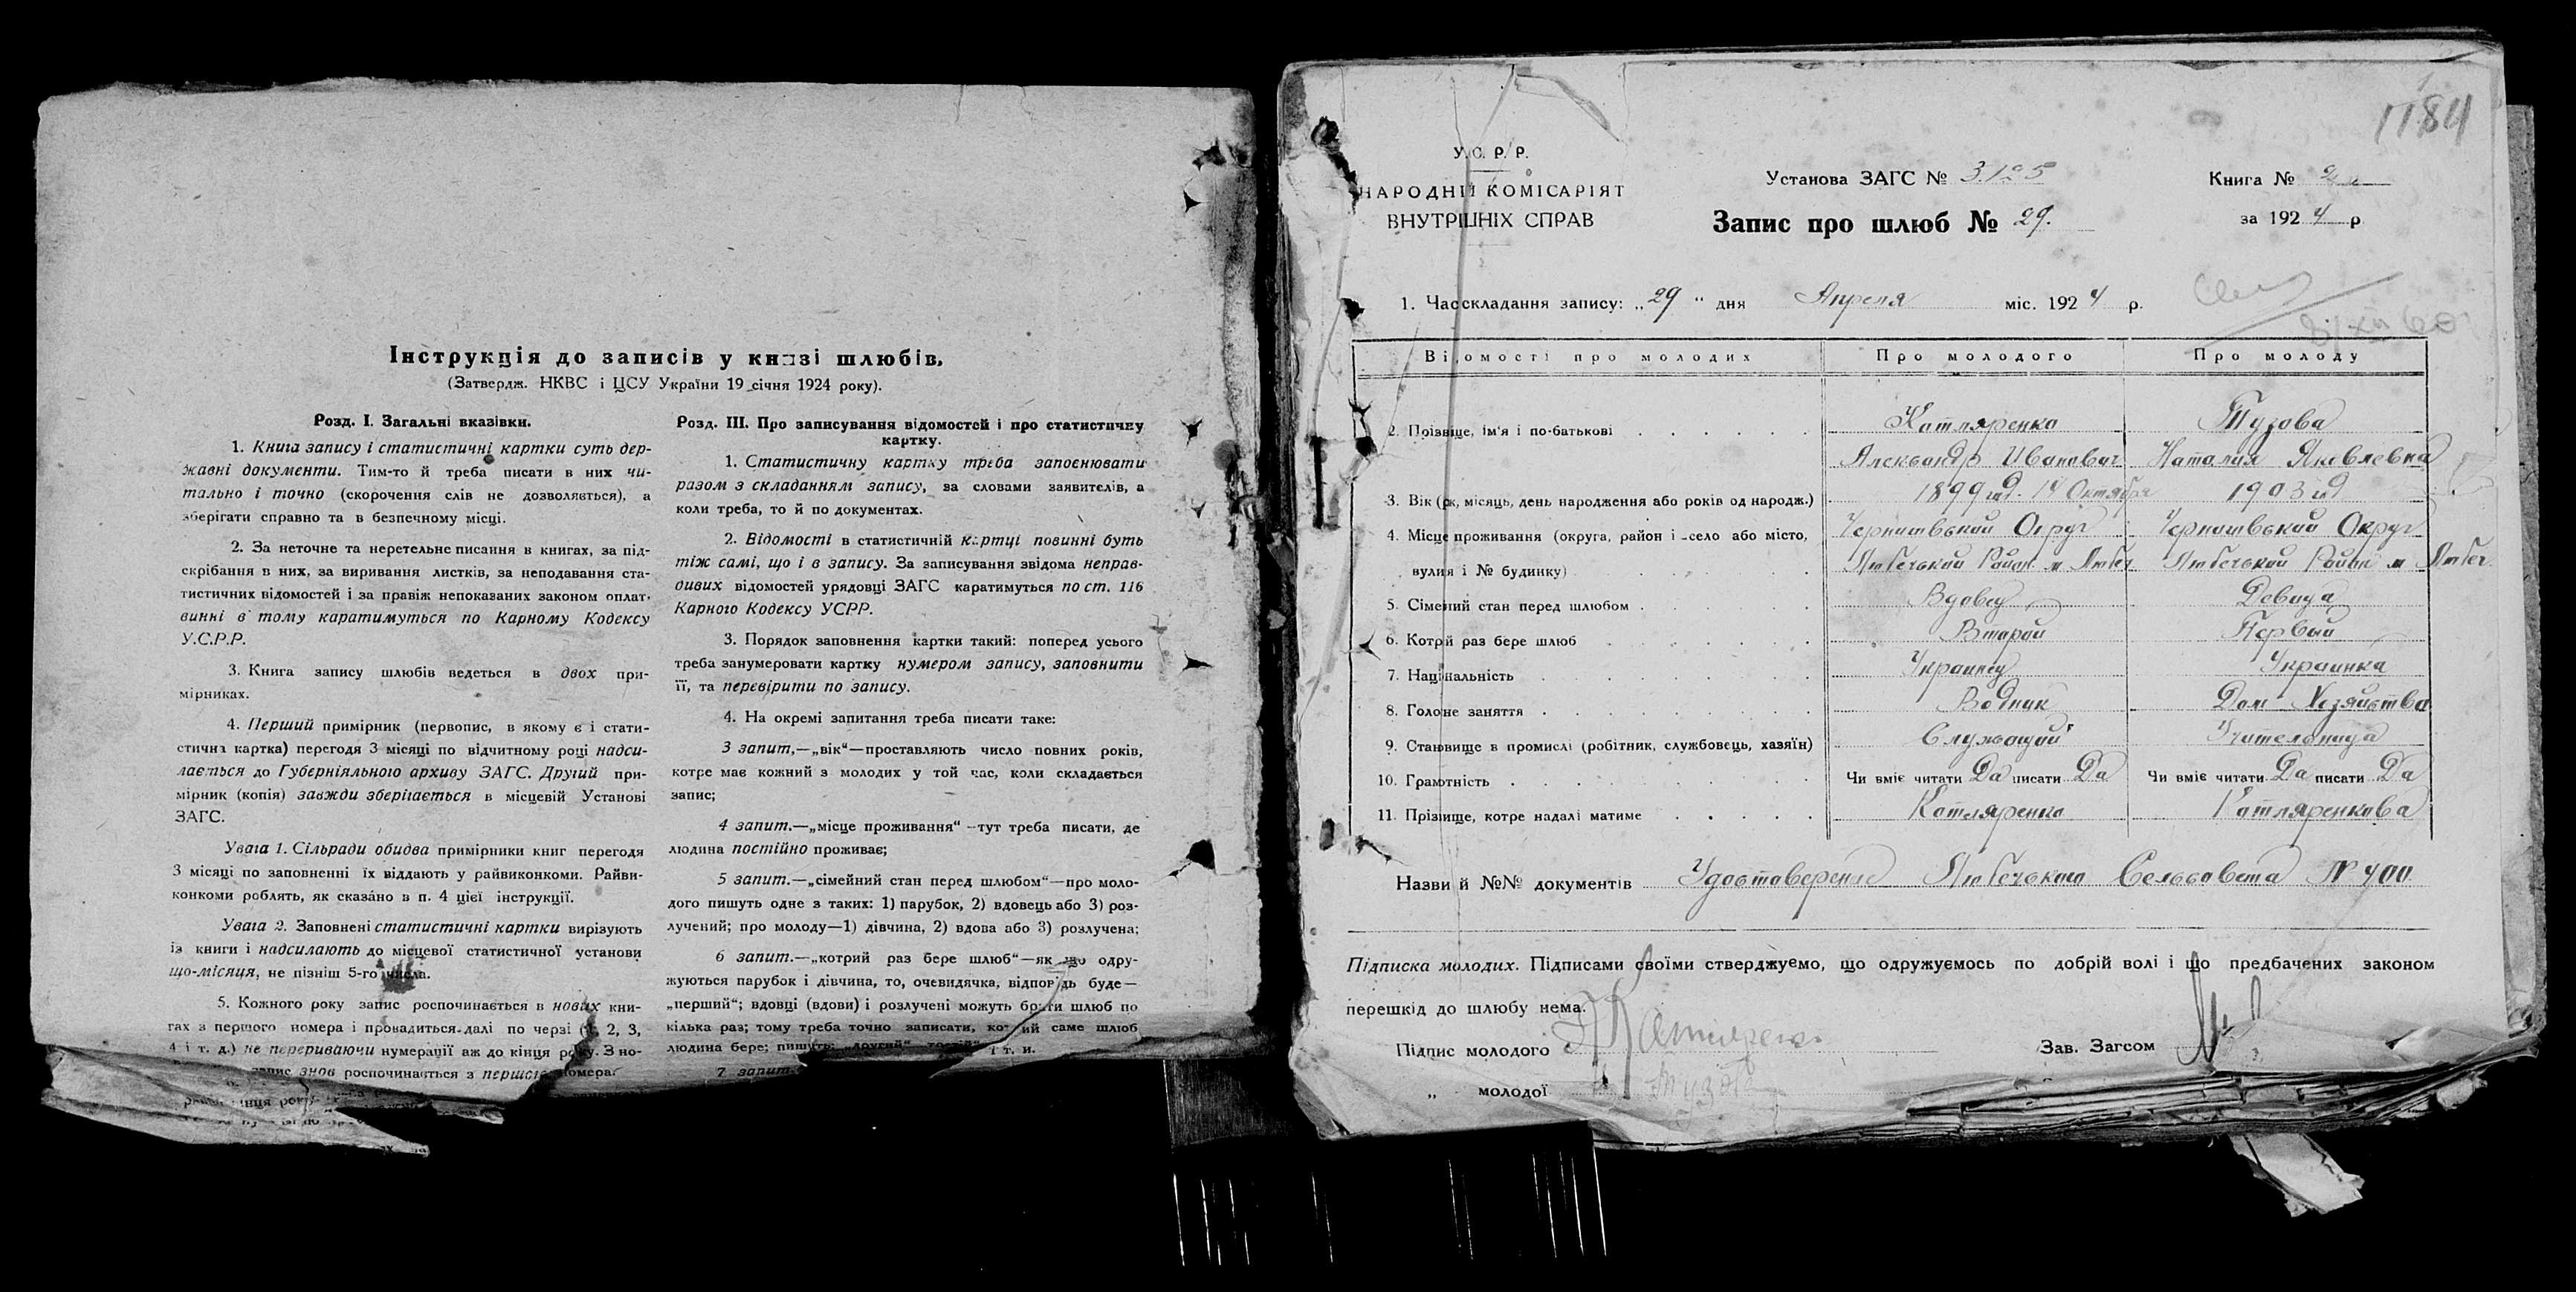 Інструкція до записів у книзі шлюбів.
(Затвердж. НКВС і ЦСУ України 19 січня 1924 року).
Розд. I. Загальні вказівки.
1. Книга запису і статистичні картки суть дер-
жавні документи. Тим-то й треба писати в них чи-
тально і точно (скорочення слів не дозволяється), а
зберігати справно та в безпечному місці.
2. За неточне та неретельне писання в книгах, за під-
скрібання в них, за виривання листків, за неподавання ста-
тистичних відомостей і за правіж непоказаних законом оплат,
винні в тому каратимуться по Карному Кодексу
У.С.Р.Р.
3. Книга запису шлюбів ведеться в двох при-
мірниках.
4. Перший примірник (первопис, в якому є і стати-
стична картка) перегодя 3 місяці по відчитному році надси-
лається до Губерніяльного архиву ЗАГС. Другий при-
мірник (копія) завжди зберігається в місцевій Установі
ЗАГС.
Увага 1. Сільради обидва примірники книг перегодя
3 місяці по заповненні їх віддають у райвиконкоми. Райви-
конкоми роблять, як сказано в п. 4 цієї інструкції.
Увага 2. Заповнені статистичні картки вирізують
із книги і надсилають до місцевої статистичної установи
що-місяця, не пізніш 5-го числа.
5. Кожного року запис роспочинається в нових кни-
гах з першого номера і провадиться далі по черзі (1, 2, 3,
4 і т. д.) не перериваючи нумерації аж до кінця року. З но-
запис знов роспочинається з першого номера.
Розд. III. Про записування відомостей і про статистичну
картку.
1. Статистичну картку треба заповнювати
разом з складанням запису, за словами заявителів, а
коли треба, то й по документах.
2. Відомості в статистичній картці повинні буть
тіж самі, що і в запису. За записування звідома неправ-
дивих відомостей урядовці ЗАГС каратимуться по ст. 116
Карного Кодексу УСРР.
3. Порядок заповнення картки такий: поперед усього
треба занумеровати картку нумером запису, заповнити
її, та перевірити по запису.
4. На окремі запитання треба писати таке:
3 запит,—„вік“—проставляють число повних років,
котре має кожний з молодих у той час, коли складається
запис;
4 запит.—„місце проживання“—тут треба писати, де
людина постійно проживає;
5 запит.—„сімейний стан перед шлюбом“—про моло-
дого пишуть одне з таких: 1) парубок, 2) вдовець або 3) роз-
лучений; про молоду—1) дівчина, 2) вдова або 3) розлучена;
6 запит.—„котрий раз бере шлюб“—як що одру-
жуються парубок і дівчина, то, очевидячка, відповідь буде—
„перший“; вдовці (вдови) і розлучені можуть брати шлюб по
кілька раз; тому треба точно записати, котрий саме шлюб
людина бере; пишуть: „другий“ „третій“ і т. и.
7 запит.
1184
У. С. Р. Р.
НАРОДНІЙ КОМІСАРІЯТ
ВНУТРІШНІХ СПРАВ
Установа ЗАГС №
Запис про шлюб № 29.
Книга №
за 1924 р
1. Час складання запису: „29“ дня Апреля міс. 1924 р.
Відомості про молодих Про молодого Про молоду
2. Прізвіще, ім'я і по-батькові Котляренко Тузова
Александр Иванович Наталия Яковлевна
3. Вік (рік, місяць, день народження або років од народж.) 1899 год. 14 Октября 1903 год
4. Місце проживання (округа, район і село або місто, Черниговський Округ Черниговський Округ
вулиця і № будинку) Любечький Район м Любеч Любечький Район м Любеч
5. Сімейний стан перед шлюбом Вдовец Девица
6. Котрий раз бере шлюб Второй Первый
7. Національність Украинец Украинка
8. Головне заняття Водник Дом Хозяйства
9. Становище в промислі (робітник, службовець, хазяїн) Служащий Учительница
10. Грамотність Чи вміє читати Да писати Да Чи вміє читати Да писати Да
11. Прізвище, котре надалі матиме Котляренко Котляренкова
Назви й №№ документів Удостоверение Любечького Сельсовета № 400
Підписка молодих. Підписами своїми стверджуємо, що одружуємось по добрій волі і що предбачених законом
перешкід до шлюбу нема.
Підпис молодого Котляренко Зав. Загсом
„ молодої Тузова